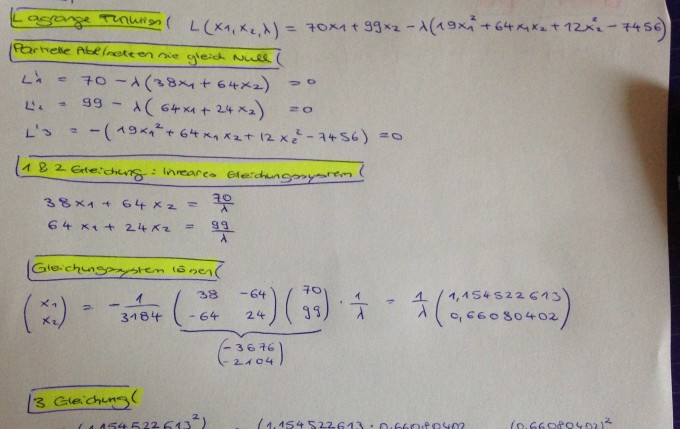 Lagrange Funktion( L(x1, x2, λ) = 70x1 + 99x2 - λ(19x1² + 64x1x2 + 12x2² - 7456)
Partielle Ableitungen gleich Null(
L'1 = 70 - λ(38x1 + 64x2) = 0
L'2 = 99 - λ(64x1 + 24x2) = 0
L'3 = -(19x1² + 64x1x2 + 12x2² - 7456) = 0
1 & 2 Gleichung: lineares Gleichungssystem(
38x1 + 64x2 = 70/λ
64x1 + 24x2 = 99/λ
Gleichungssystem lösen(
(x1 x2) = -1/3184 (38 -64 -64 24) (70 99) · 1/λ = 1/λ (1,154522613 0,66080402)
(-3676 -2104)
3 Gleichung(
(1,154522613²) (1,154522613 · 0,66080402 (0,66080402)²